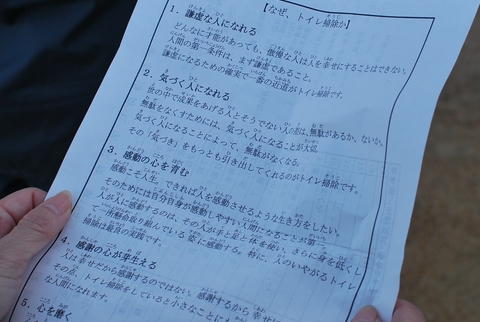 【なぜ、トイレ掃除か】
1．謙虚な人になれる
どんなに才能があっても、傲慢な人は人を幸せにすることはできない。
人間の第一条件は、まず謙虚であること。
謙虚になるための確実で一番の近道がトイレ掃除です。
2．気づく人になれる
世の中で成果をあげる人とそうでない人の差は、無駄があるか、ないか。
無駄をなくすためには、気づく人になることが大切。
気づく人になることによって、無駄がなくなる。
その「気づき」をもっとも引き出してくれるのがトイレ掃除です。
3．感動の心を育む
感動こそ人生。できれば人を感動させるような生き方をしたい。
そのためには自分自身が感動しやすい人間になることが第一
人が人に感動するのは、その人が手と足と体を使い、さらに身を低くし
て一所懸命取り組んでいる姿に感動する。特に、人のいやがるトイレ
掃除は最良の実践です。
4．感謝の心が芽生える
人は幸せだから感謝するのではない。感謝するから幸せに
その点、トイレ掃除をしていると小さなことにも
な人間になれます。
5．心を磨く